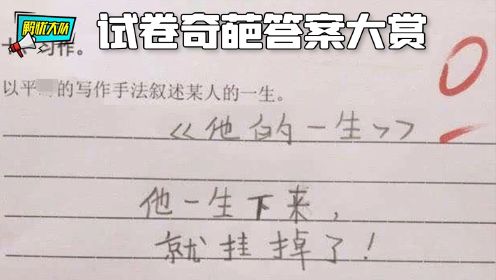 解忧大队
试卷奇葩答案大赏
十一习作。
以平 的写作手法叙述某人的一生。
《他的一生》
他一生下来，
就挂掉了！
0